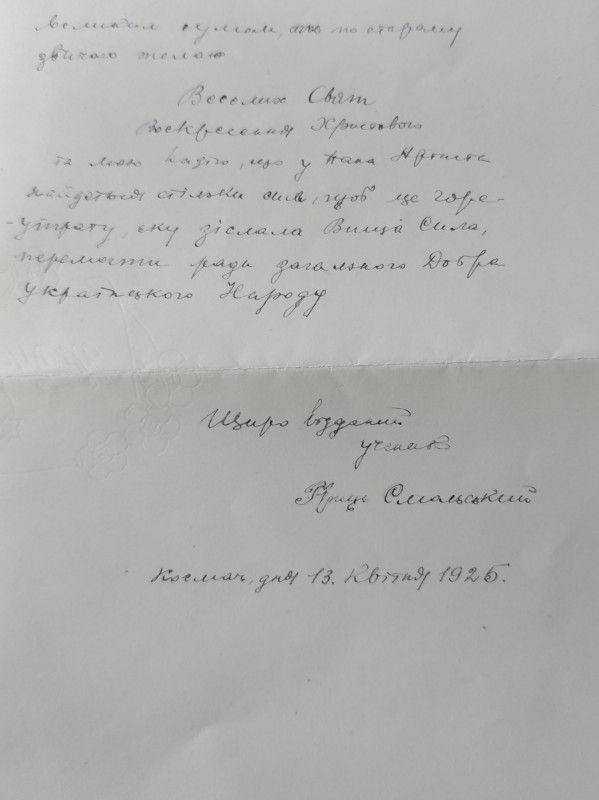 великим сумом, но по старому
звичаю желаю
Веселих Свят
Воскресення Христового
та маю надію, що у Пана
найдеться стільки сили, щоб це горе-
-утрату, яку зіслала Вища Сила,
перемогти ради загального Добра
Українського Народу
Щиро відданий
ученик
Гриць Смольський
Космач, дня 13. Квітня 1925.